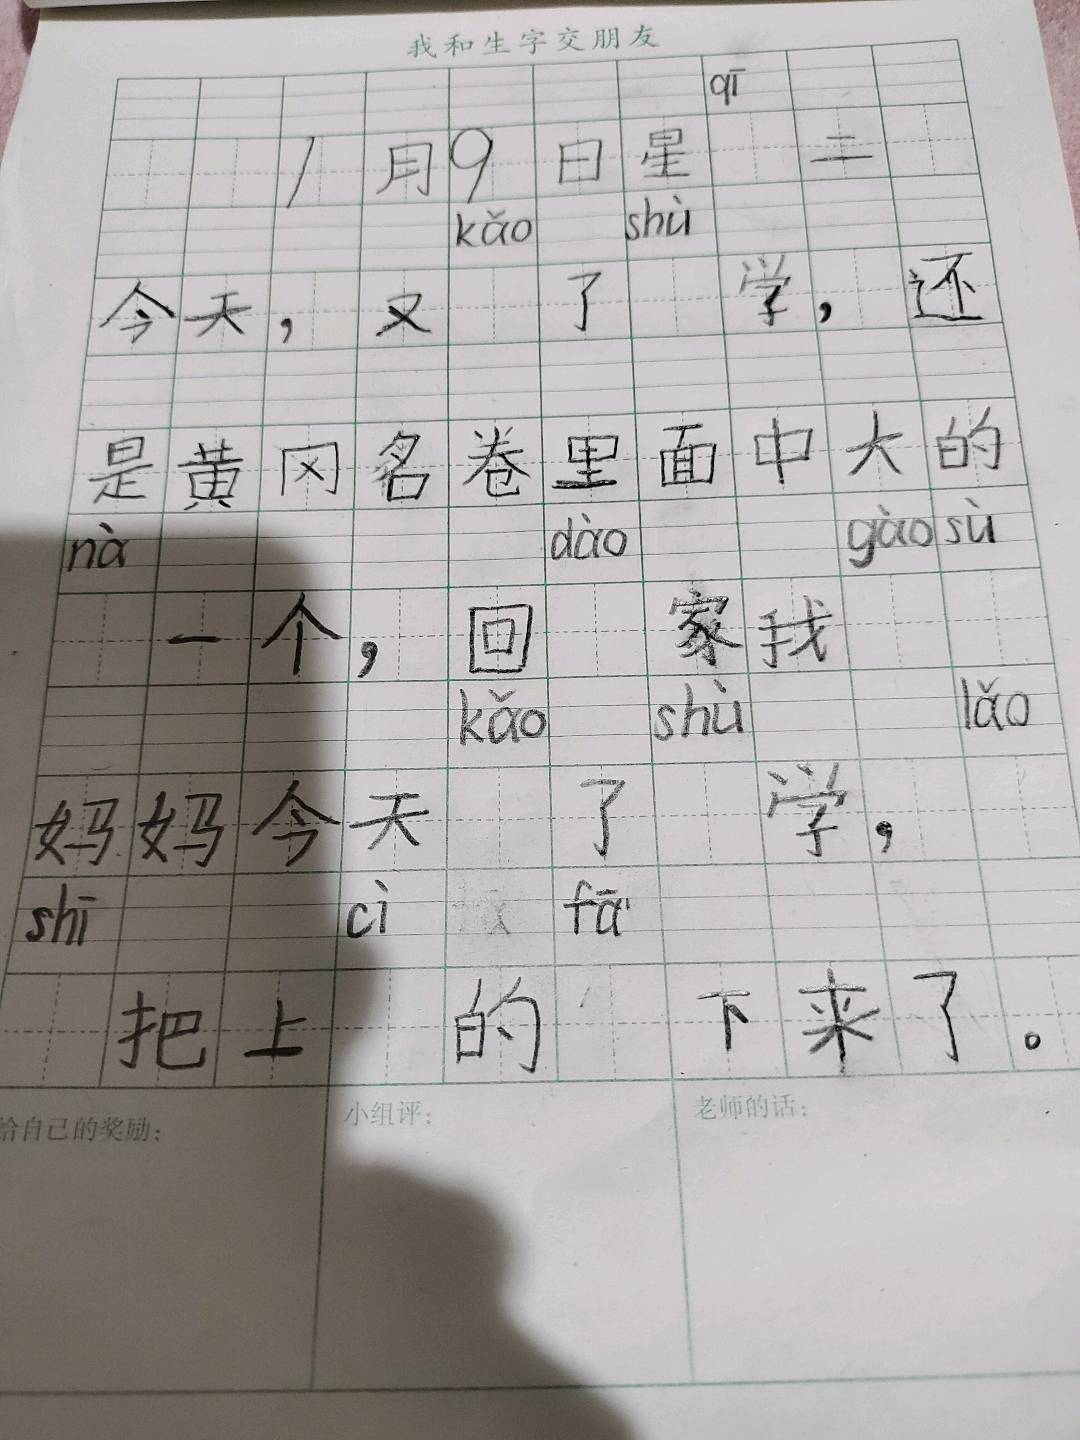 我和生字交朋友
qī
1月9日星 二
kǎo shù
今天，又 了 学，还
是黄冈名卷里面中大的
nà dào gào sù
一个，回 家我
kǎo shù lǎo
妈妈今天 了 学，
shī cì fā
把上 的 下来了。
给自己的奖励：
小组评：
老师的话：